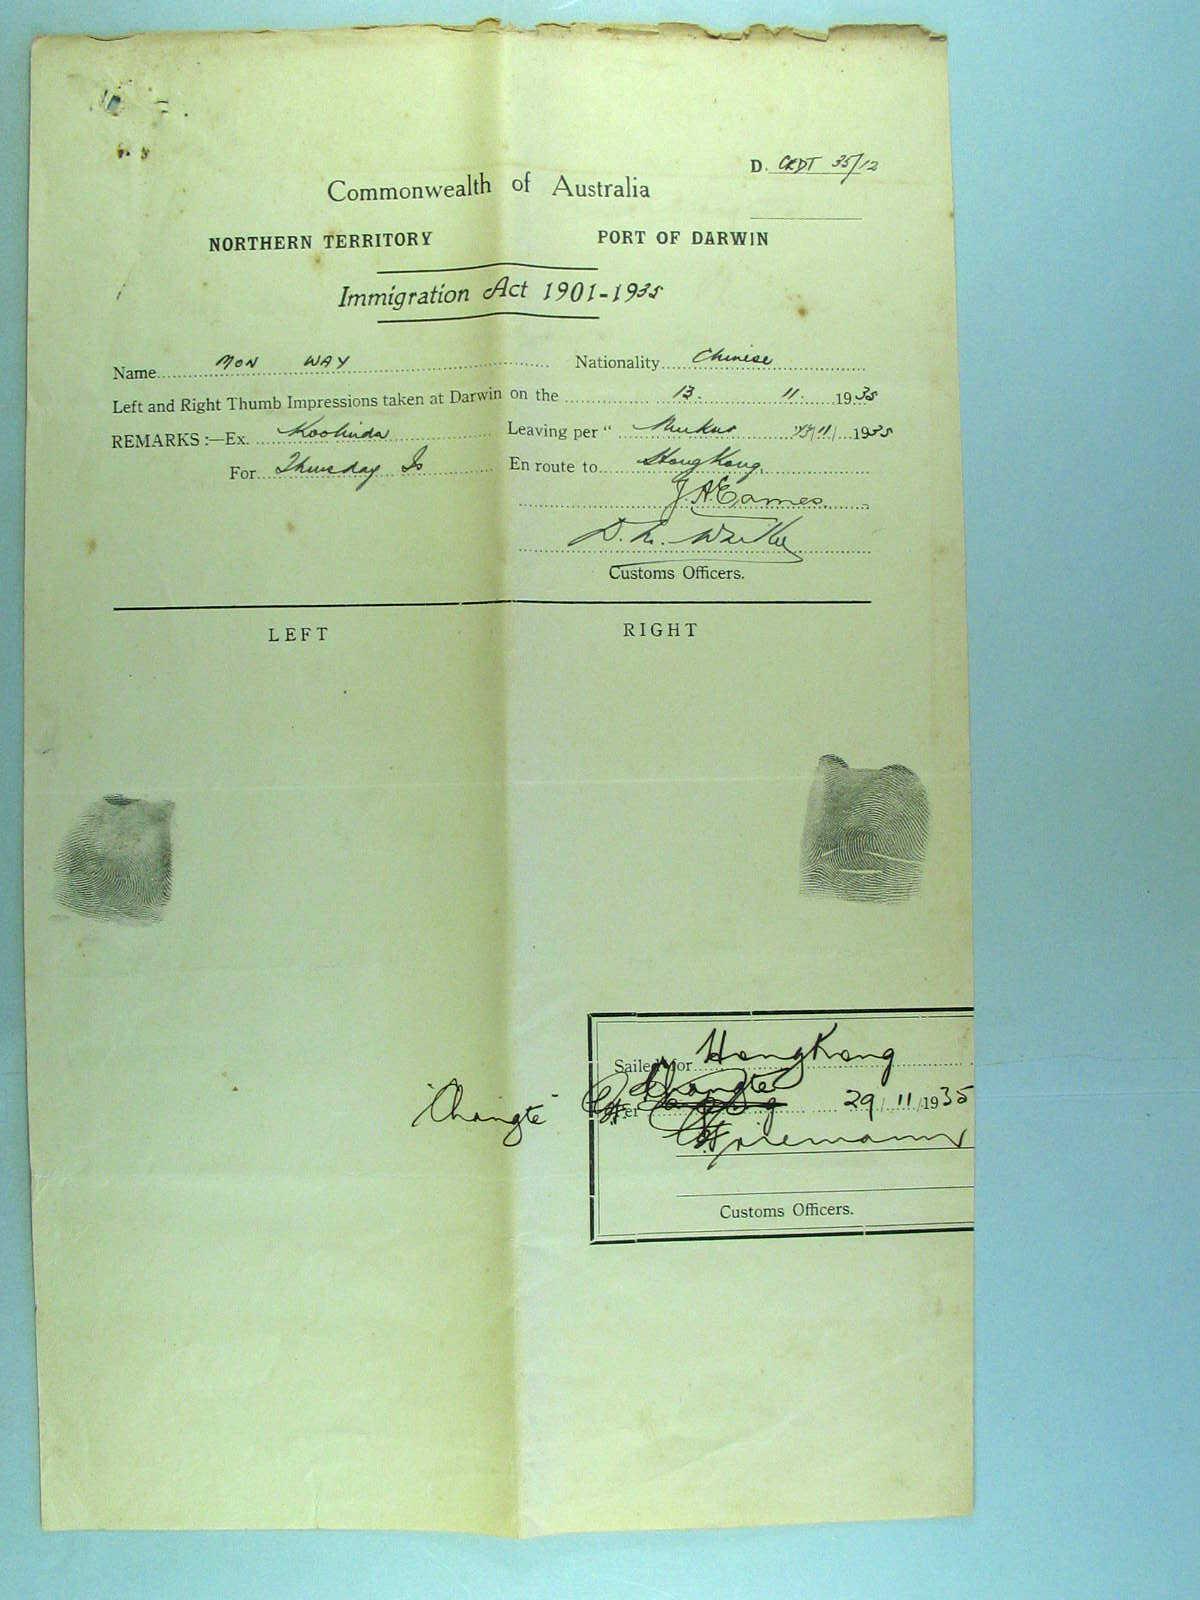 D. CRDT 35/12
Commonwealth of Australia
NORTHERN TERRITORY PORT OF DARWIN
Immigration Act 1901-1935
Name MON WAY Nationality Chinese
Left and Right Thumb Impressions taken at Darwin on the 13. 11. 1935
REMARKS :—Ex. Koolinda Leaving per " Merkur 13/11/ 1935
For Thursday Is En route to Hong Kong.
J. A. Eames.
D. L.
Customs Officers.
LEFT RIGHT
Sailed for HongKong
Changte
"Changte" Per 29/11/1935
Customs Officers.